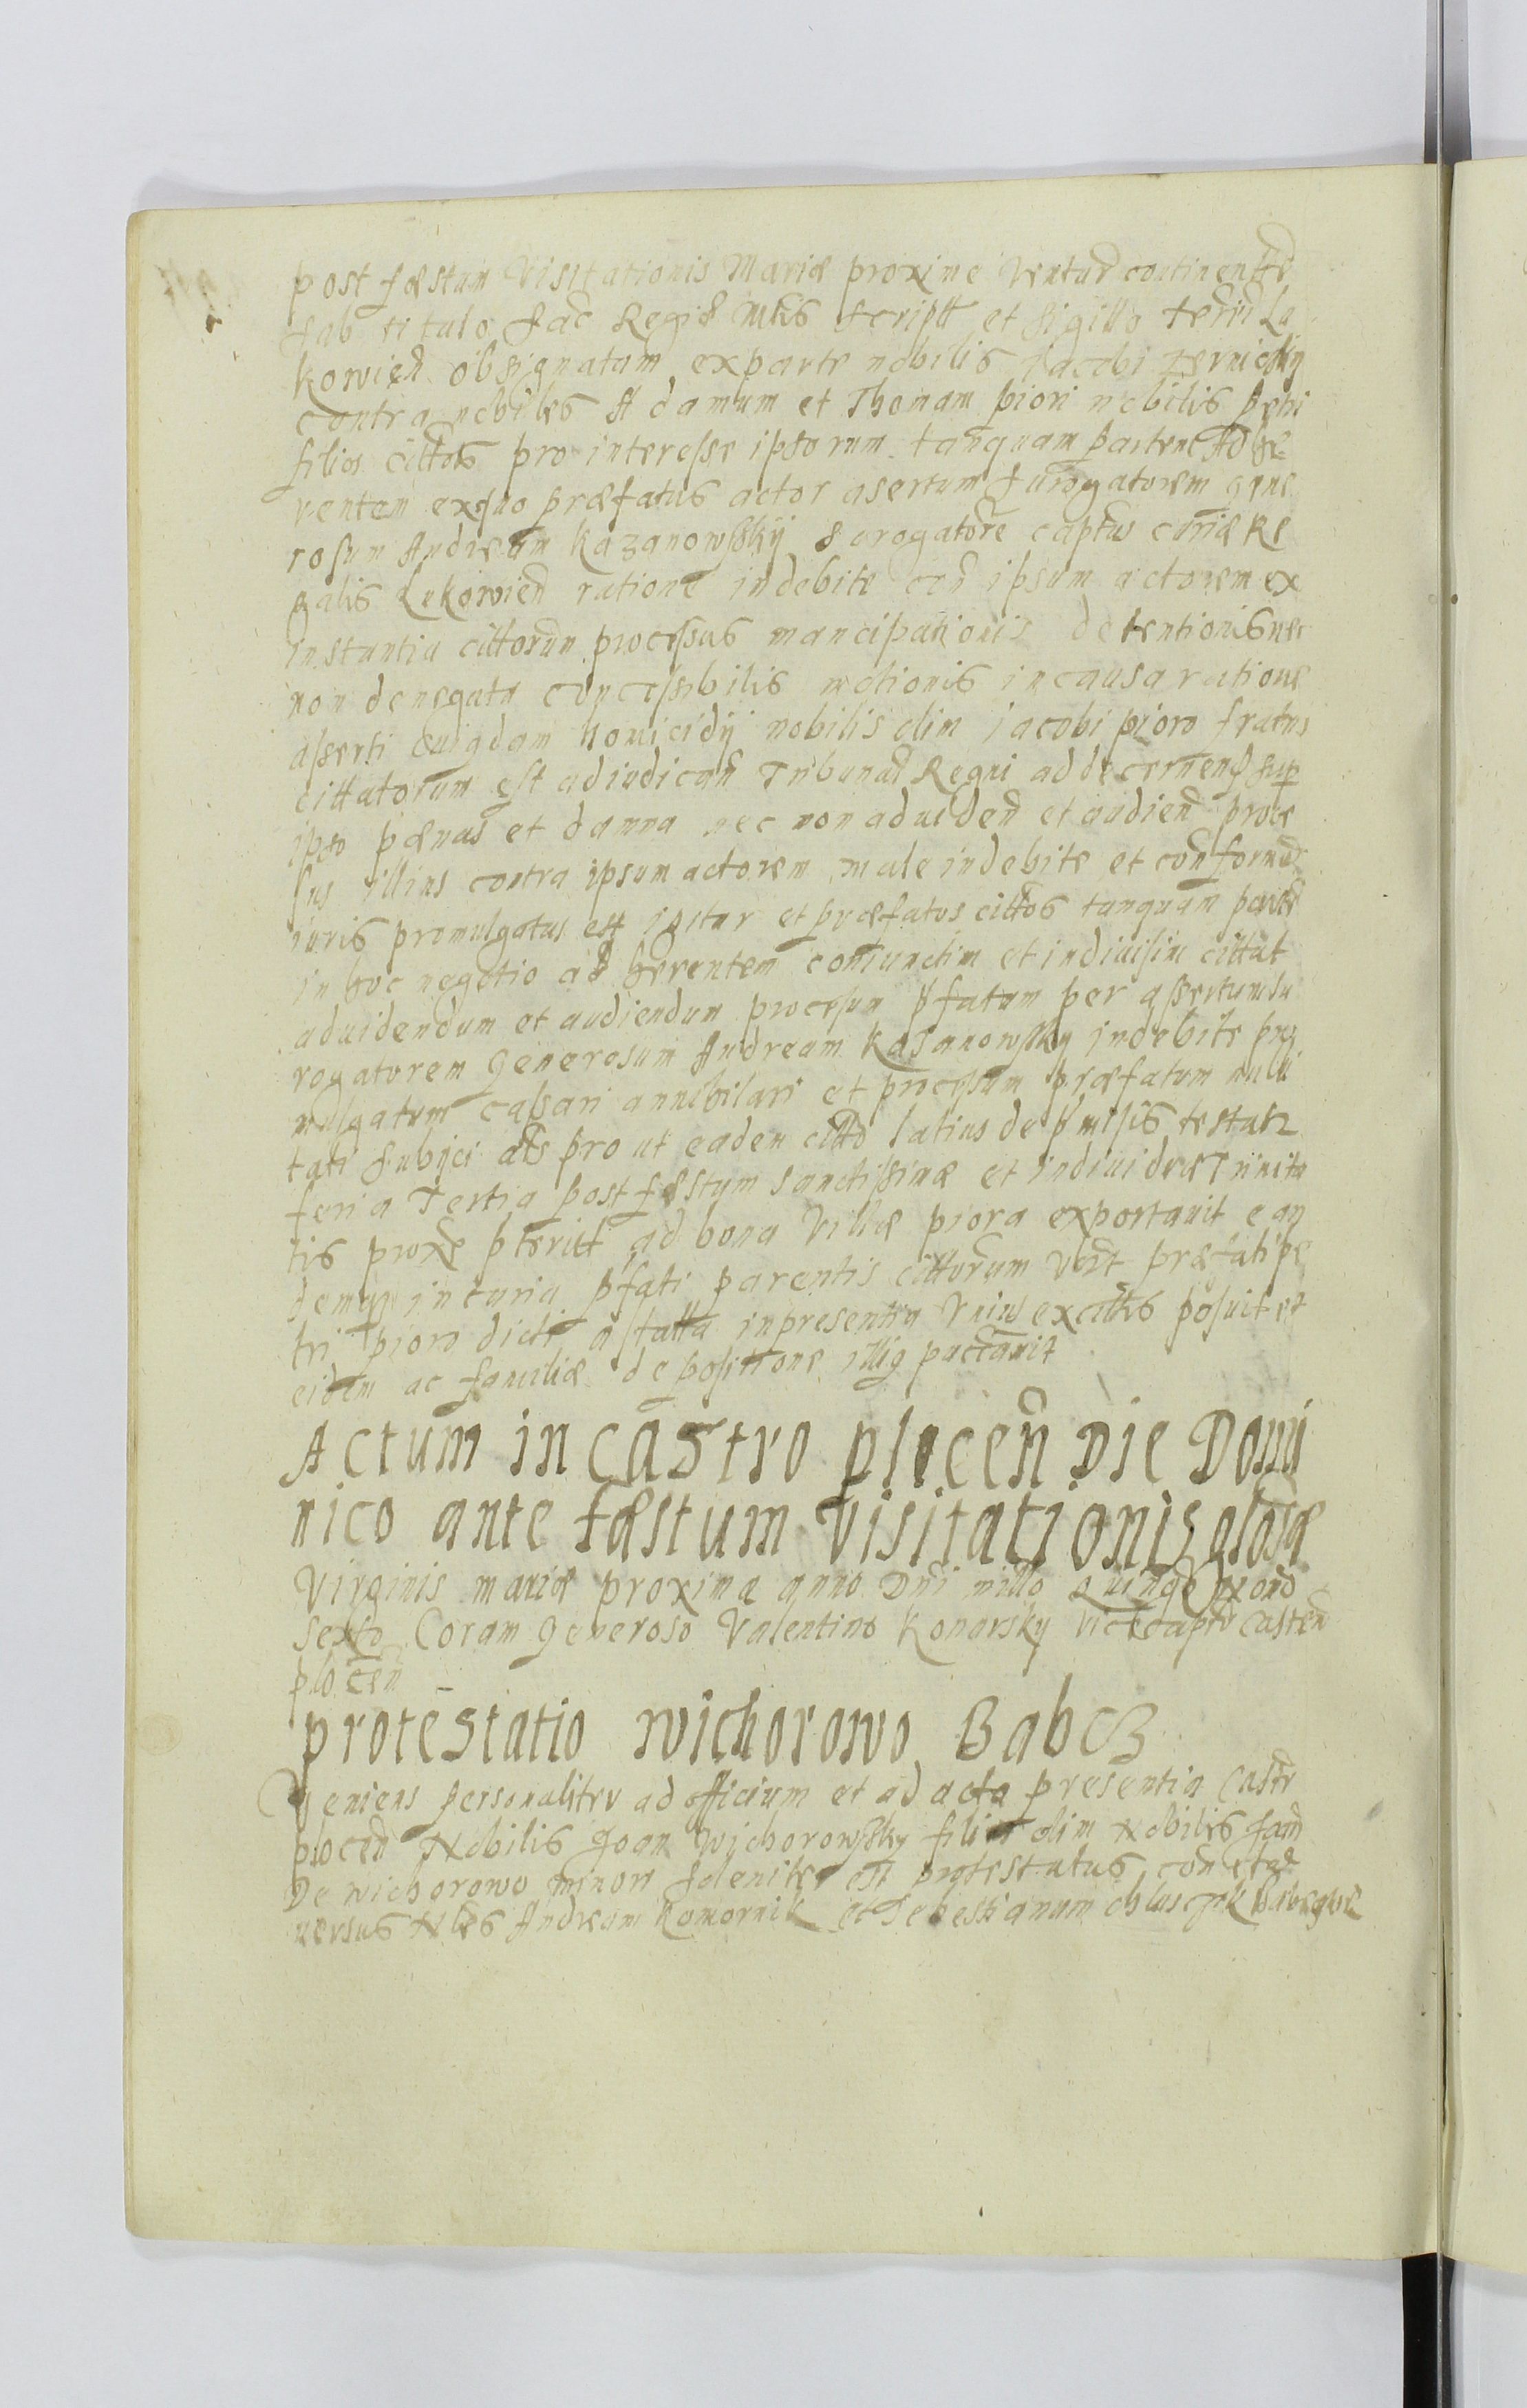 post fæstum Visitationis Mariæ proxime Ventur continen
sub titulo Sac Regiæ Mtis script et sigillo terri La
kowien obsignatam exparte nobilis Jacobi
contra nobiles Adamum et Thomam piori nobilis petri
filios cittos pro interesse ipsorum tanquam partem Adhe
rentem exquo præfatus actor asertum surogatorem gene
rosum Andream Kazanowsskÿ Surogatore captus curiæ Re
galis Lekowien ratione indebite con ipsum actorem ex
instantia cittorum processus mancipationis detentionis nec
non denegatæ concessibilis motionis in causa ratione
asserti cuiqdam homicidij nobilis olim jacobi pioro fratris
cittatorum est adiudican Tribunal Regni ad decernend sup
ipso pænas et damna nec non aduiden et audien proce
sus illius contra ipsum actorem male indebite et con formā
iuris promulgatus est igitur et præfatos cittos tanquam parte
in hoc negotio ad herentem coniunctim et indiuisim cittat
aduidendum et audiendum procesum pfatum per assertum su
rogatorem Generosum Andream Kasanowsky indebite pro
mulgatum cassari annihilari et procesum præfatum nulli
tati subijci als pro ut eadem citto latius de pmissis testatr
feria Tertia post fæstum sanctissimæ et indiuiduæ Trinita
tis proxe pterit ad bona Villæ piora exportauit ean
demqz in curia pfati parentis cittorum Vert præfati pe
tri pioro dicti a statta in presentia Vnius ex cittis posuit et
eidem ac familiæ de positione illiq pactauit
Actum in castro plocen Die Domi
nico ante fæstum Visitationis glosæ
Virginis mariæ proxima anno Dni millo Quinge nono
sexto Coram Generoso Valentino Konarsky Vicecaptō Casten
plocen
protestatio wichorowo Babcz
Veniens personaliter ad officium et ad acta presentia Castr
plocen Nobilis Joan Wichorowssky filius olim Nobilis
De wichorowo minori soleniter est protestatus con et ad
uersus Nbles Andream Komornik et Sebestianum